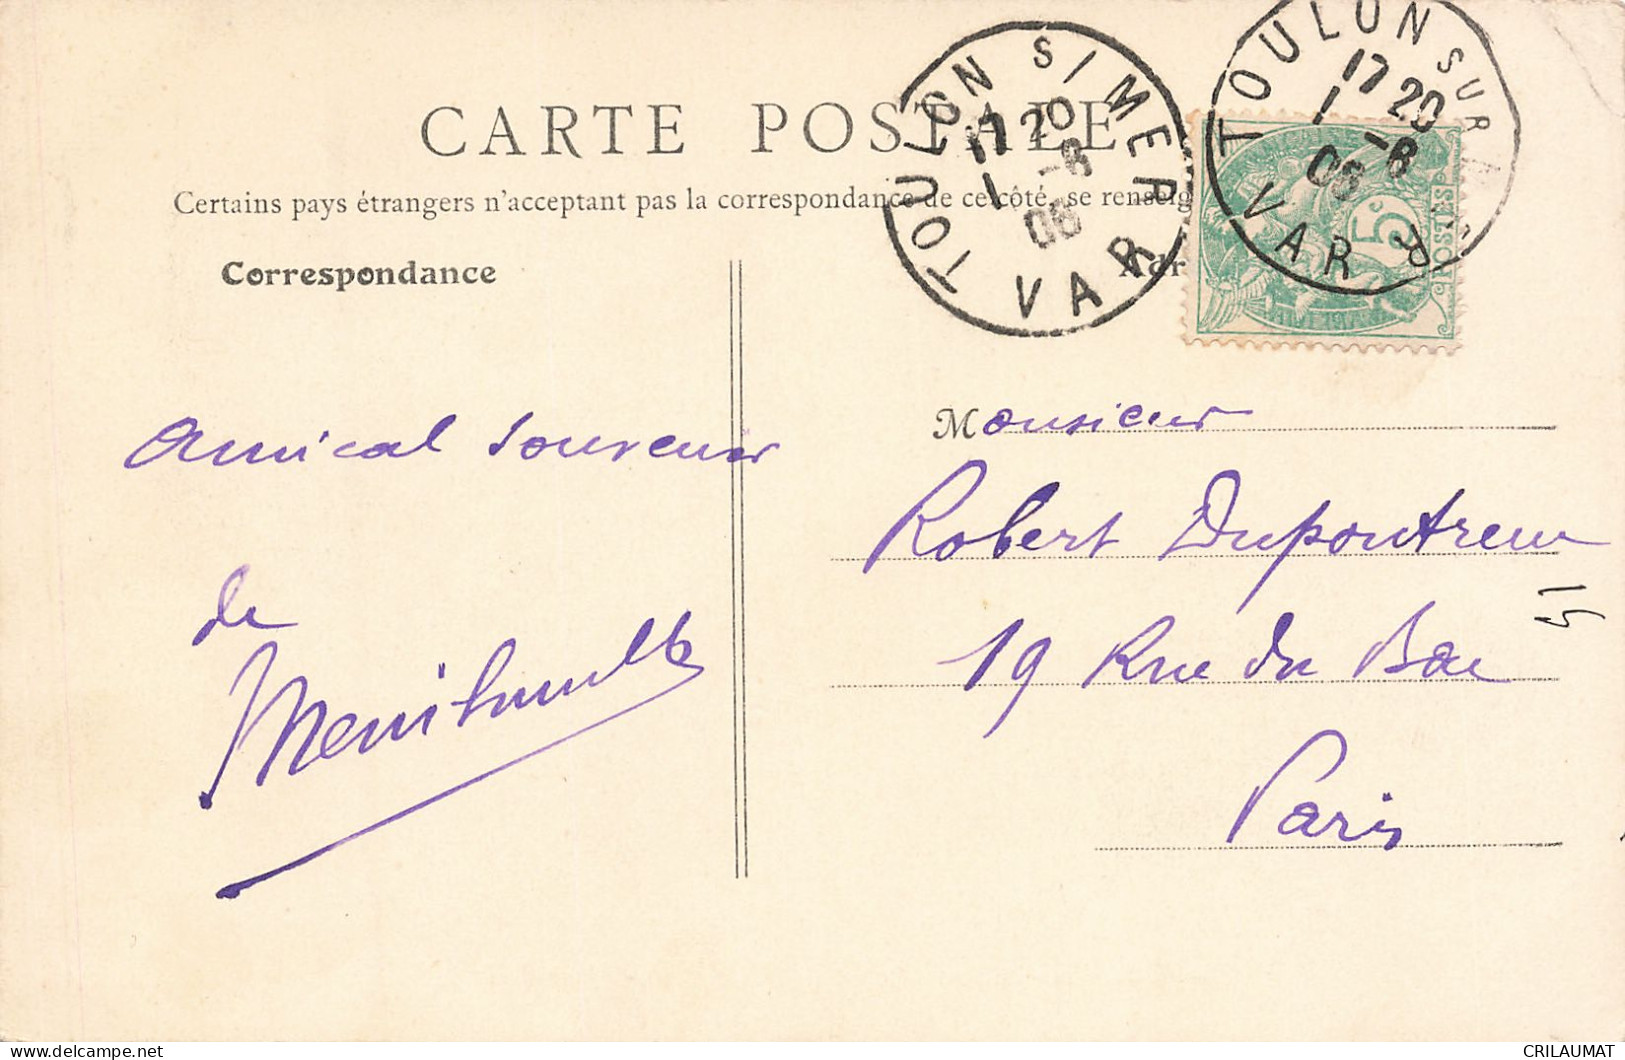 CARTE POSTALE
Certains pays étrangers n'acceptant pas la correspondance de ce côté, se renseig
Correspondance
TOULON S/MER
17 20
1 -8
06
VAR
TOULON SUR
17 20
1 -8
06
VAR
5c
POSTES
Amical souvenir
de
Monsieur
Robert Dupontreue
19 Rue du Bac
Paris
51
CRILAUMAT